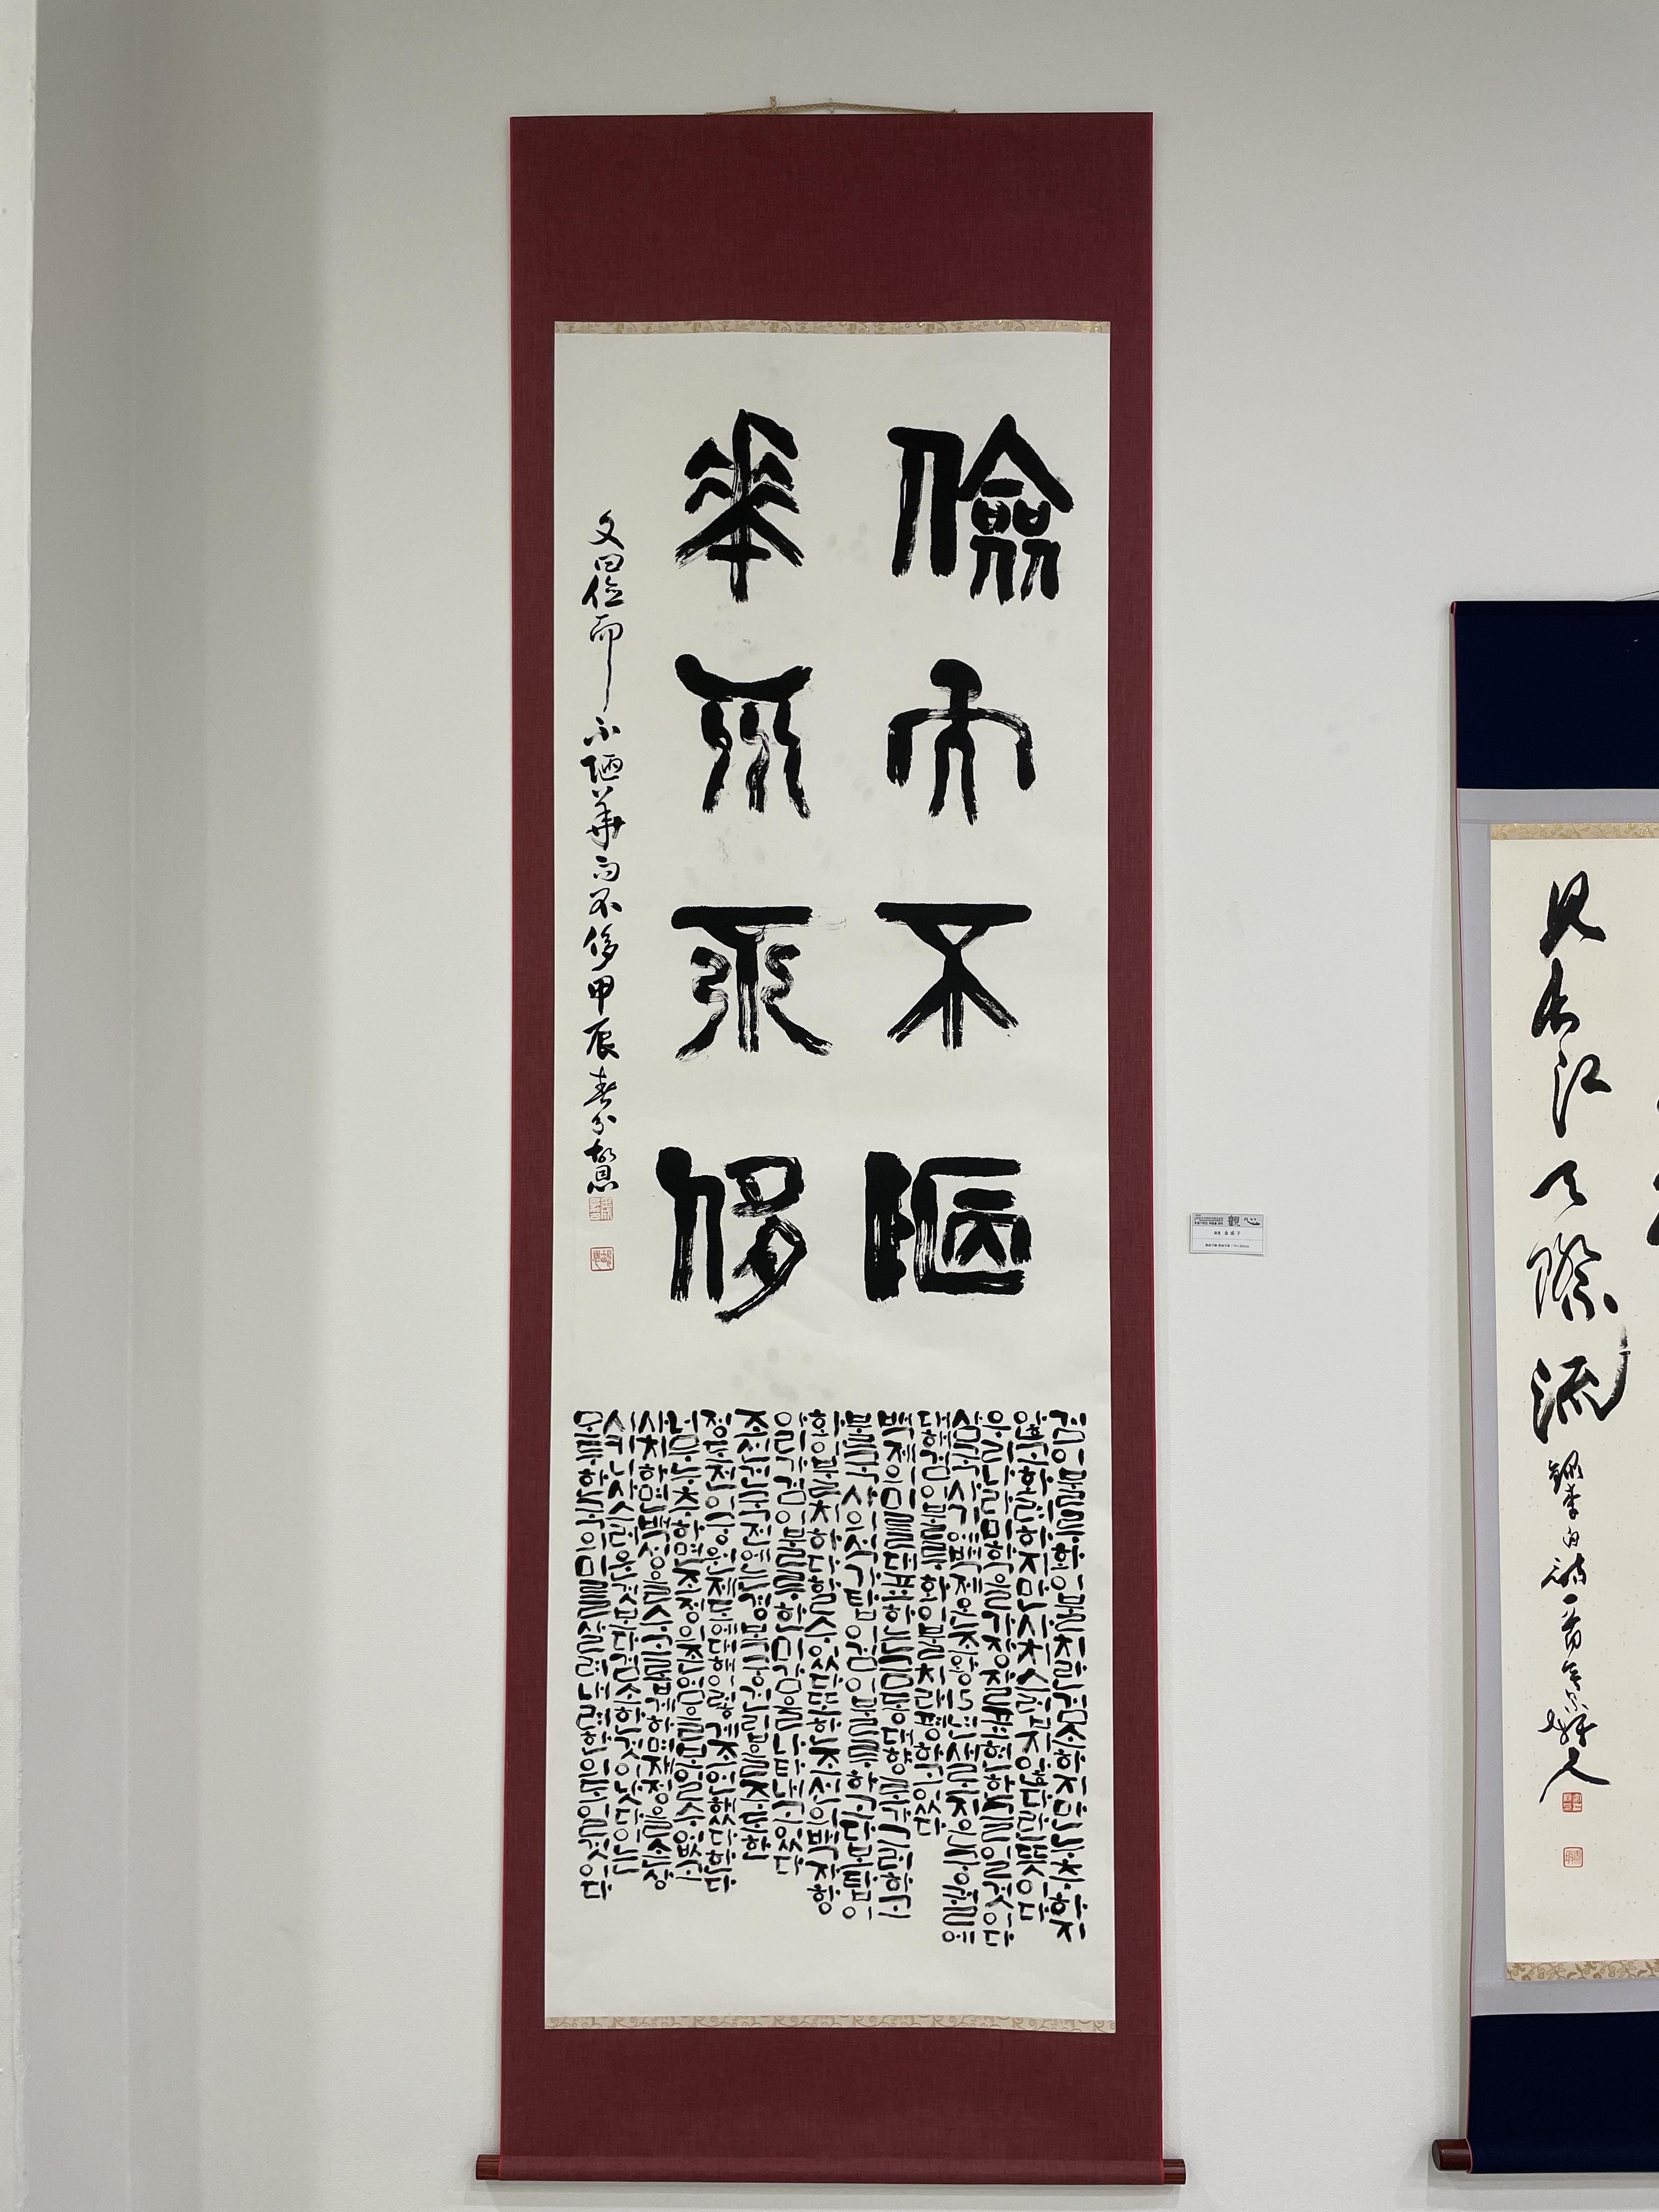 儉而不陋
華而不侈
文曰儉而不陋華而不侈甲辰春分
검이불루화이불치란검소하지만누추하지
않고화려하지만사치스럽지않다란뜻이다
우리나라미학을가장잘표현한글일것이다
삼국사기에백제온조왕5년새로지은궁궐에
대해검이불루화이불치래평하고있다
백제의미를대표하는금동대향로가그러하고
불국사의석가탑이검이불루하고다보탑이
화이불치하다할수있다또한조선의백자항
아리가검이불루한미감을나타내고있다
조선건국전에는경복궁건립을주도한
정도전이궁원제도에대해이렇게조언했다한다
너무누추하면조정의존엄을보일수없고
사치하면백성을수고롭게하며재정을손상
시키니사스러운것보다검소한것이낫다이는
우등한우의미를살려내려한의도일것이다
見長江天際流
觀心